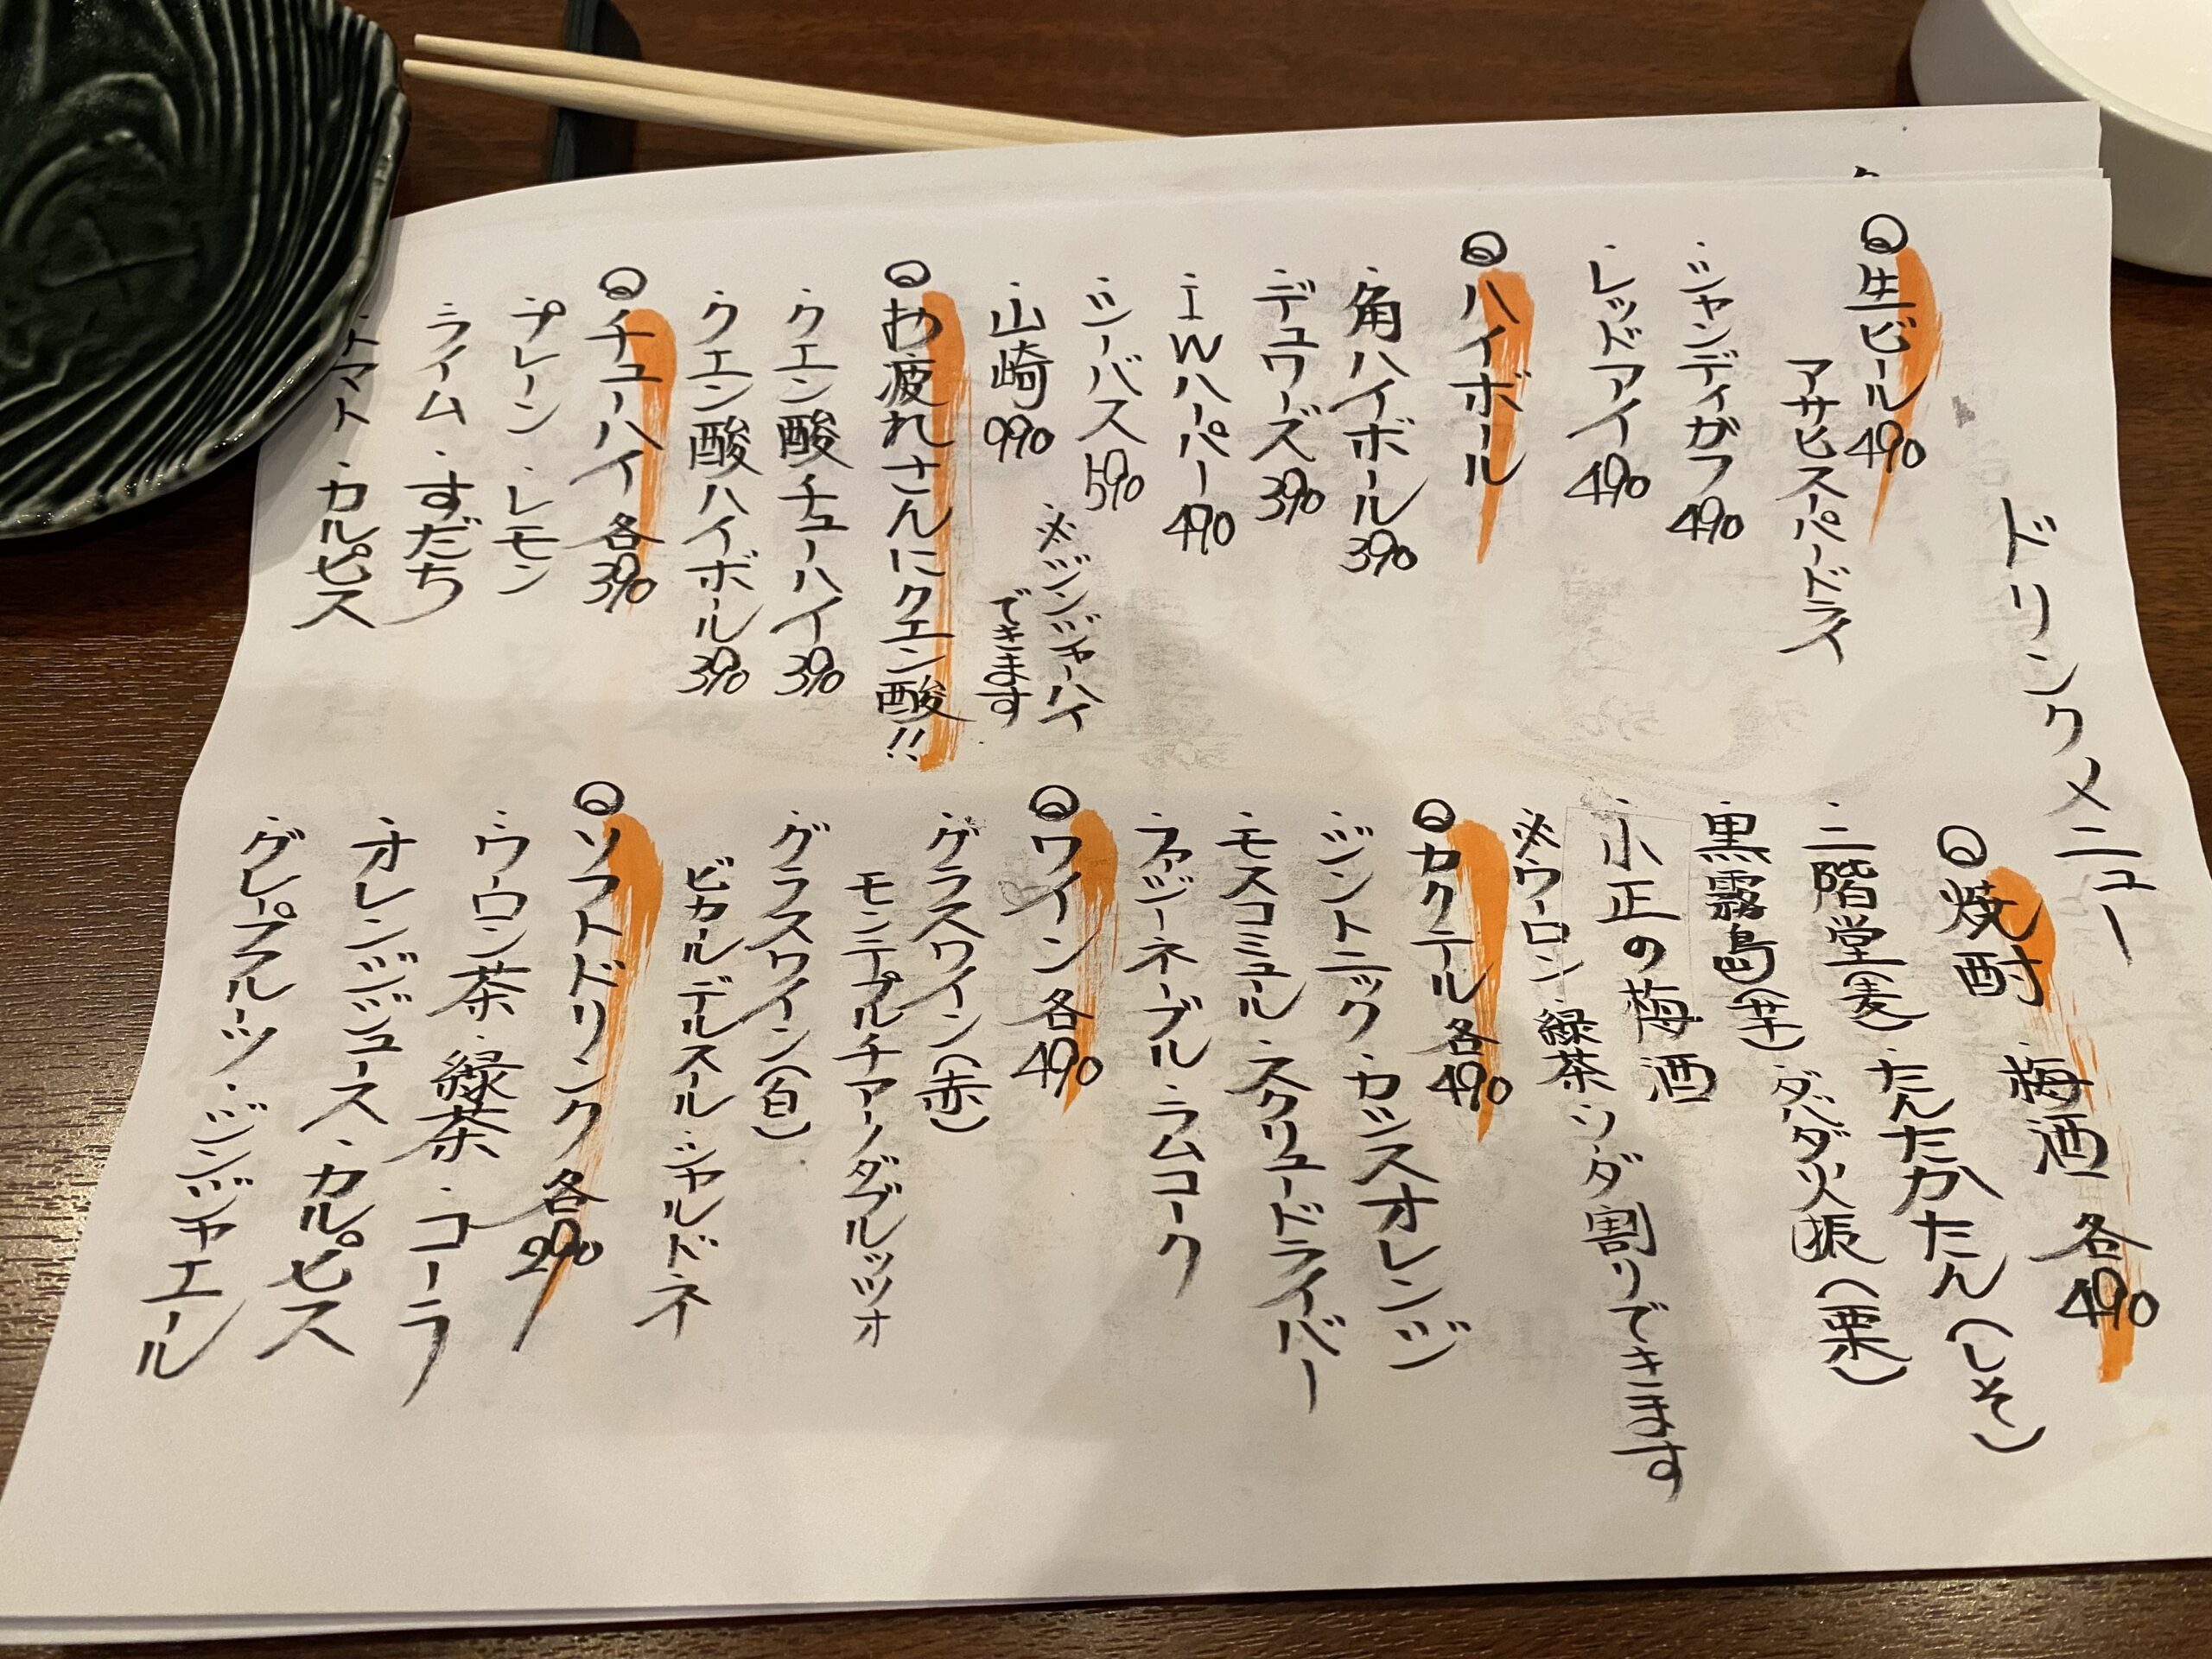 ドリンクメニュー
生ビール 490
アサヒスーパードライ
・シャンディガフ 490
・レッドアイ 490
ハイボール
・角ハイボール 390
・デュワーズ 390
・I.W.ハーパー 490
・シーバス 590
・山崎 990
※ジンジャーハイ
できます
お疲れさんにクエン酸!!
・クエン酸チューハイ 390
・クエン酸ハイボール 390
チューハイ 各390
・プレーン・レモン
・ライム・すだち
・トマト・カルピス
焼酎・梅酒 各490
・二階堂(麦)・たんたかたん(しそ)
・黒霧島(芋)・ダバダ火振(栗)
・小正の梅酒
※ウーロン・緑茶・ソーダ割りできます
カクテル 各490
・ジントニック・カシスオレンジ
・モスコミュール・スクリュードライバー
・ファジーネーブル・ラムコーク
ワイン 各490
・グラスワイン(赤)
モンテプルチアーノダブルッツォ
・グラスワイン(白)
ビカールデルスール・シャルドネ
ソフトドリンク 各290
・ウーロン茶・緑茶・コーラ
・オレンジジュース・カルピス
・グレープフルーツ・ジンジャエール